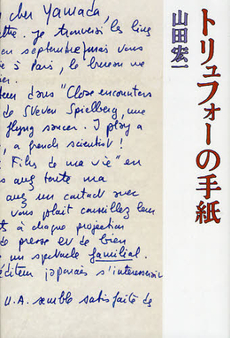 cher Yamada,
tte. Je trouverai les livres
en septembre, mais vous
à Paris, le bureau ne
teur dans "Close encounters
de Steven Spielberg, une
flying saucer. I play a
, a french scientist!
Films de ma vie" en
avez toute ma
avez un contact avec
vous plaît conseillez leur
à chaque projection
de presse et de bien
un spectacle familial.
éditeur japonais s'intéressait
U.A. semble satisfaite de
トリュフォーの手紙
山田宏一